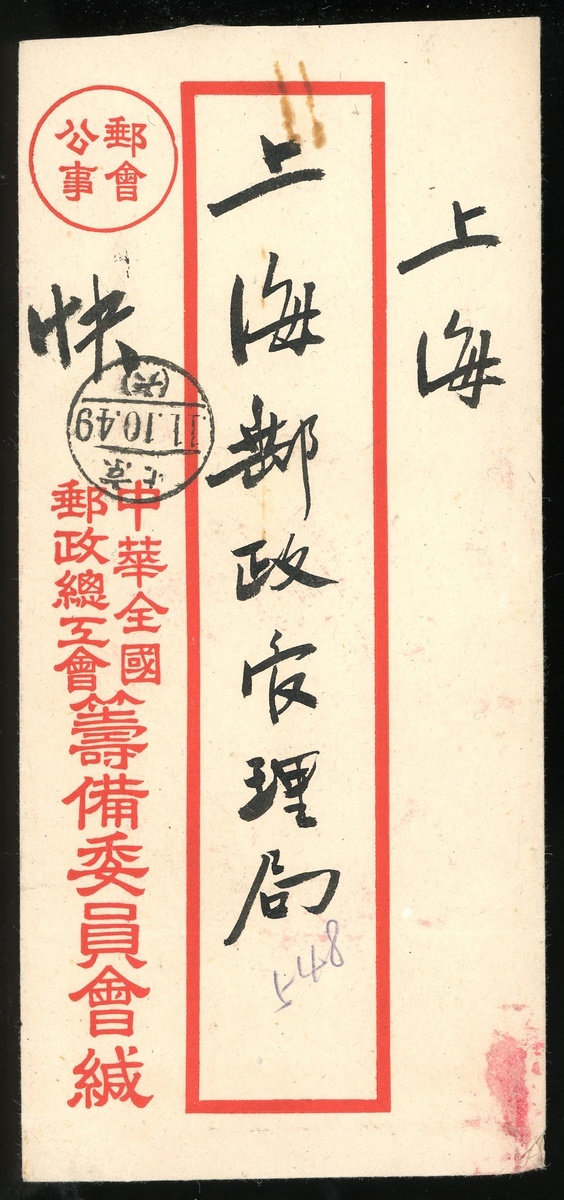 上海
上海郵政管理局
548
郵會
公事
快
11.10.49
中華全國
郵政總工會
籌備委員會緘